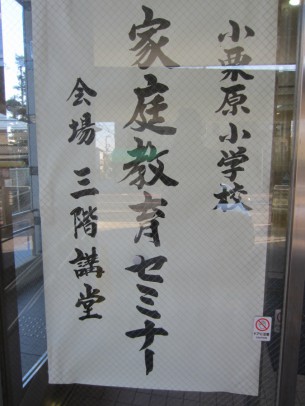 小栗原小学校
家庭教育セミナー
会場 三階講堂